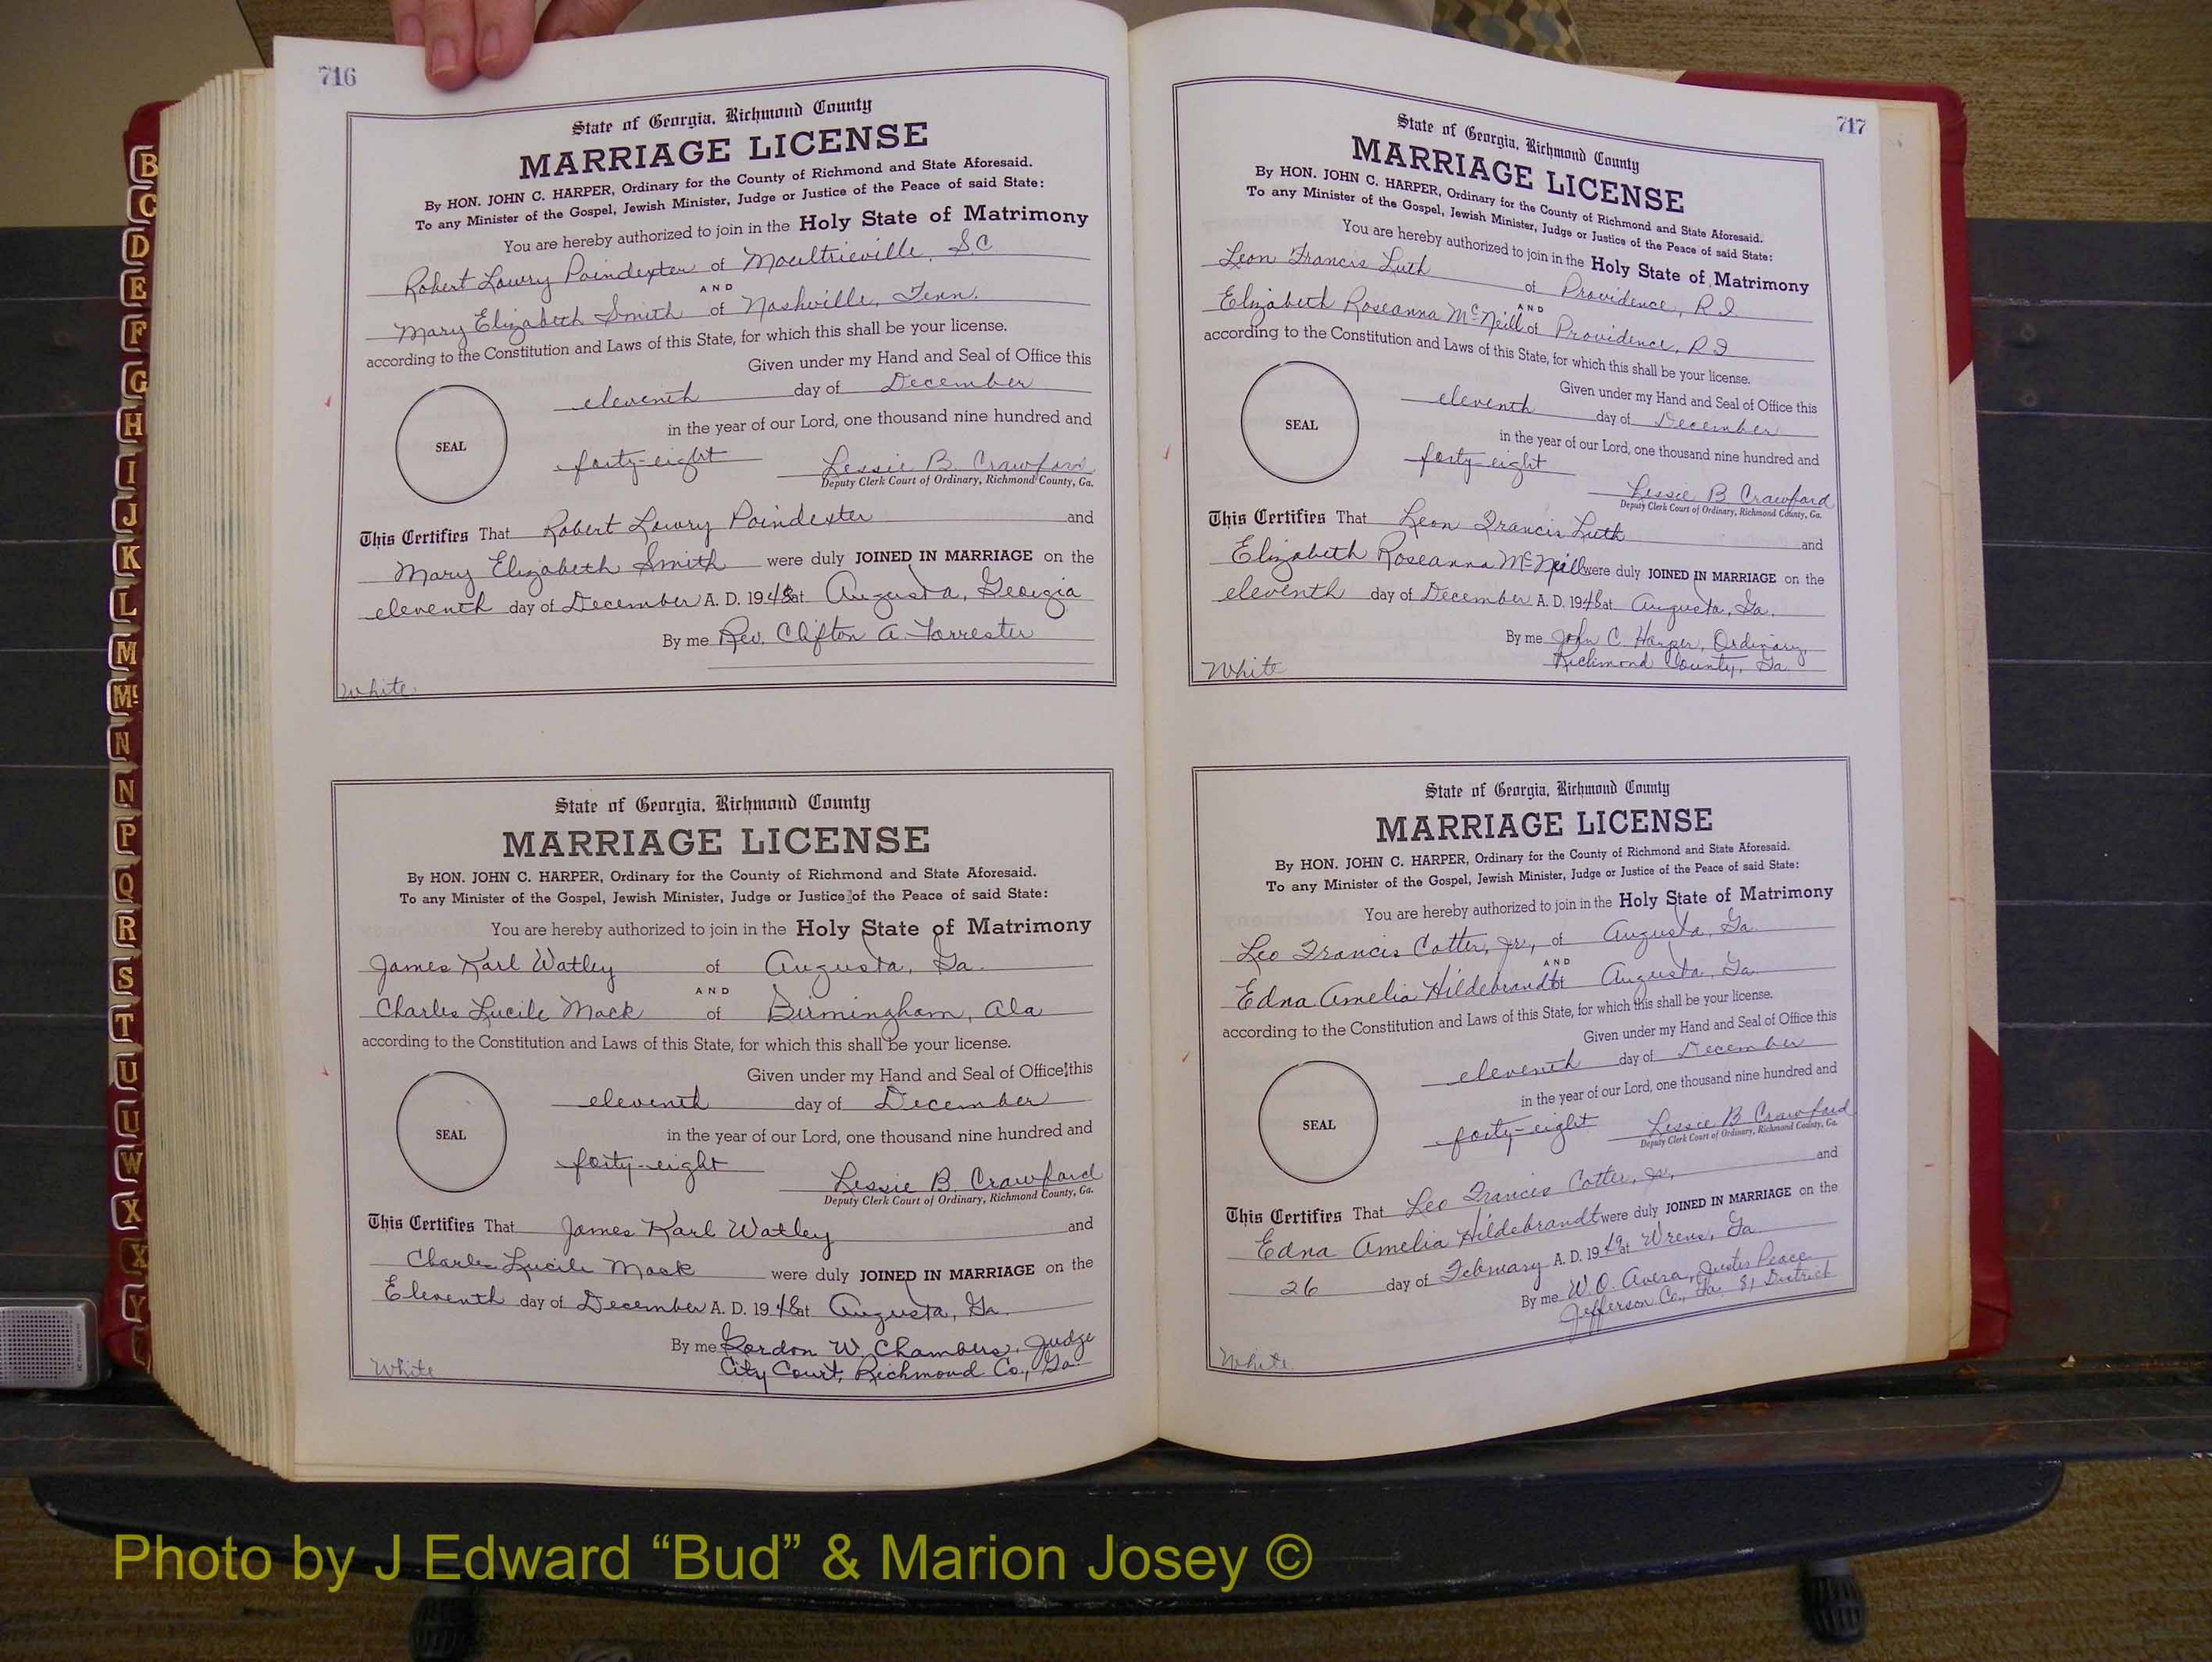 716
State of Georgia, Richmond County
MARRIAGE LICENSE
By HON. JOHN C. HARPER, Ordinary for the County of Richmond and State Aforesaid.
To any Minister of the Gospel, Jewish Minister, Judge or Justice of the Peace of said State:
You are hereby authorized to join in the Holy State of Matrimony
Robert Lowry Poindexter of Moultrieville, S.C.
AND
Mary Elizabeth Smith of Nashville, Tenn.
according to the Constitution and Laws of this State, for which this shall be your license.
Given under my Hand and Seal of Office this
eleventh day of December
in the year of our Lord, one thousand nine hundred and
SEAL
forty-eight Lessie B. Crawford
Deputy Clerk Court of Ordinary, Richmond County, Ga.
This Certifies That Robert Lowry Poindexter and
Mary Elizabeth Smith were duly JOINED IN MARRIAGE on the
eleventh day of December A. D. 1948 at Augusta, Georgia
By me Rev. Clifton A. Forrester
White
State of Georgia, Richmond County
MARRIAGE LICENSE
By HON. JOHN C. HARPER, Ordinary for the County of Richmond and State Aforesaid.
To any Minister of the Gospel, Jewish Minister, Judge or Justice of the Peace of said State:
You are hereby authorized to join in the Holy State of Matrimony
James Karl Watley of Augusta, Ga.
AND
Charles Lucile Mack of Birmingham, Ala
according to the Constitution and Laws of this State, for which this shall be your license.
Given under my Hand and Seal of Office this
eleventh day of December
in the year of our Lord, one thousand nine hundred and
SEAL
forty-eight Lessie B. Crawford
Deputy Clerk Court of Ordinary, Richmond County, Ga.
This Certifies That James Karl Watley and
Charles Lucile Mack were duly JOINED IN MARRIAGE on the
Eleventh day of December A. D. 1948 at Augusta, Ga.
By me Gordon W. Chambers, Judge
City Court, Richmond Co., Ga.
White
717
State of Georgia, Richmond County
MARRIAGE LICENSE
By HON. JOHN C. HARPER, Ordinary for the County of Richmond and State Aforesaid.
To any Minister of the Gospel, Jewish Minister, Judge or Justice of the Peace of said State:
You are hereby authorized to join in the Holy State of Matrimony
Leon Francis Luth of Providence, R.I.
AND
Elizabeth Roseanna McNeill of Providence, R I
according to the Constitution and Laws of this State, for which this shall be your license.
Given under my Hand and Seal of Office this
eleventh day of December
in the year of our Lord, one thousand nine hundred and
SEAL
forty-eight
Lessie B Crawford
Deputy Clerk Court of Ordinary, Richmond County, Ga.
This Certifies That Leon Francis Luth and
Elizabeth Roseanna McNeill were duly JOINED IN MARRIAGE on the
eleventh day of December A. D. 1948 at Augusta, Ga.
By me John C. Harper, Ordinary,
Richmond County, Ga.
White
State of Georgia, Richmond County
MARRIAGE LICENSE
By HON. JOHN C. HARPER, Ordinary for the County of Richmond and State Aforesaid.
To any Minister of the Gospel, Jewish Minister, Judge or Justice of the Peace of said State:
You are hereby authorized to join in the Holy State of Matrimony
Leo Francis Cotter, Jr., of Augusta, Ga
AND
Edna Amelia Hildebrandt of Augusta, Ga.
according to the Constitution and Laws of this State, for which this shall be your license.
Given under my Hand and Seal of Office this
eleventh day of December
in the year of our Lord, one thousand nine hundred and
SEAL
forty-eight Lessie B Crawford
Deputy Clerk Court of Ordinary, Richmond County, Ga.
This Certifies That Leo Francis Cotter, Jr, and
Edna Amelia Hildebrandt were duly JOINED IN MARRIAGE on the
26 day of February A. D. 1949 at Wrens, Ga
By me W. O. Avera, Peace
Jefferson Co., Ga. 81 District
White
B
C
D
E
F
G
H
I
J
K
L
M
Mc
N
N
P
Q
R
S
T
U
U
W
X
X
Y
Photo by J Edward “Bud” & Marion Josey ©